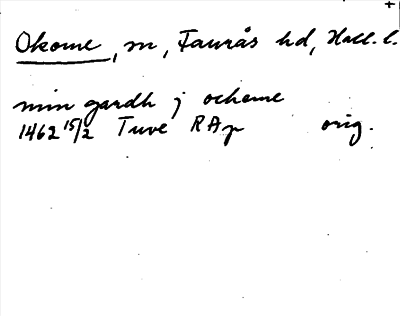 +
Okome, sn, Faurås hd, Hall. l.
min gardh j ocheme
1462 15/2 Tuve RAp orig.